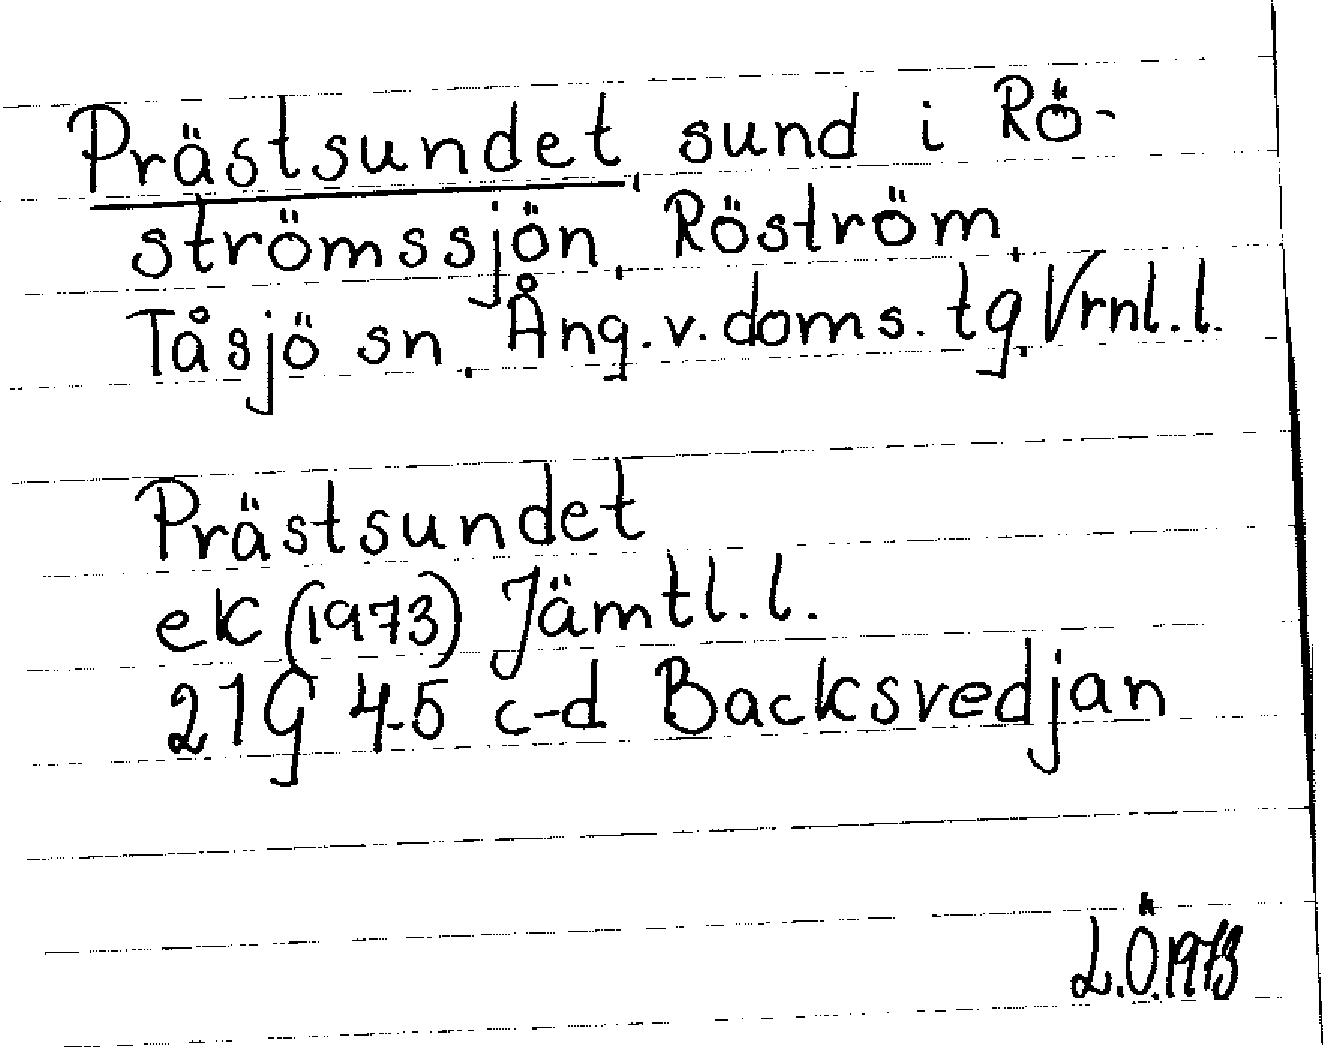 Prästsundet, sund i Rö-
strömssjön, Röström,
Tåsjö sn, Ång.v.doms.tg, Vrnl.l.
Prästsundet
ek (1973) Jämtl.l.
21G 4-5 c-d Backsvedjan
L.Ö.1973